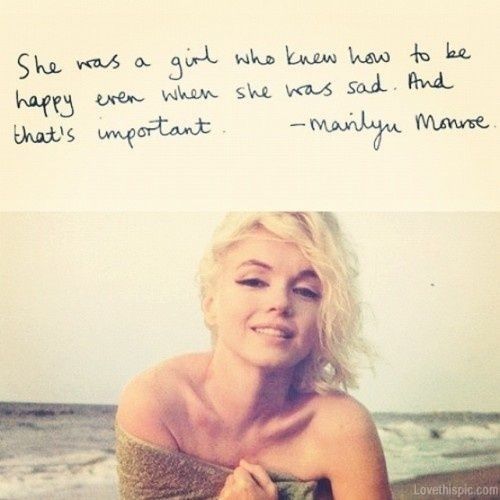 She was a girl who knew how to be
happy even when she was sad. And
that's important. - Marilyn Monroe.
Lovethispic.com